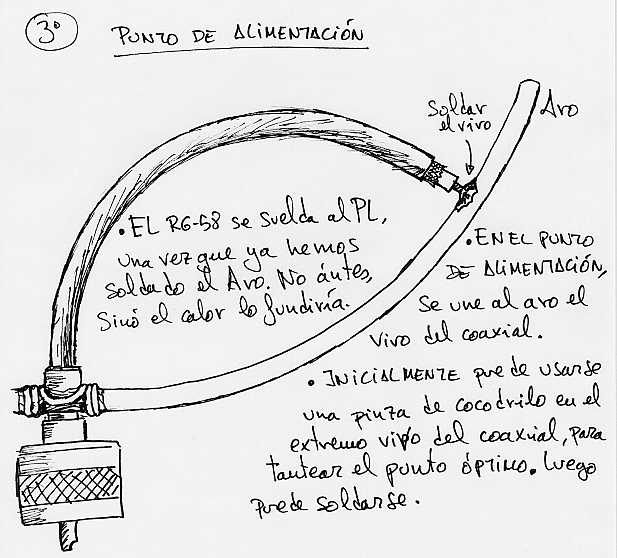 3º
PUNTO DE ALIMENTACIÓN
Soldar
el vivo
Aro
• EL RG-58 se suelda al PL,
una vez que ya hemos
soldado el Aro. No ántes,
Sinó el calor lo fundiría.
• EN EL PUNTO
DE ALIMENTACIÓN,
Se une al aro el
vivo del coaxial.
• INICIALMENTE puede usarse
una pinza de cocodrilo en el
extremo vivo del coaxial, para
tantear el punto óptimo. Luego
puede soldarse.